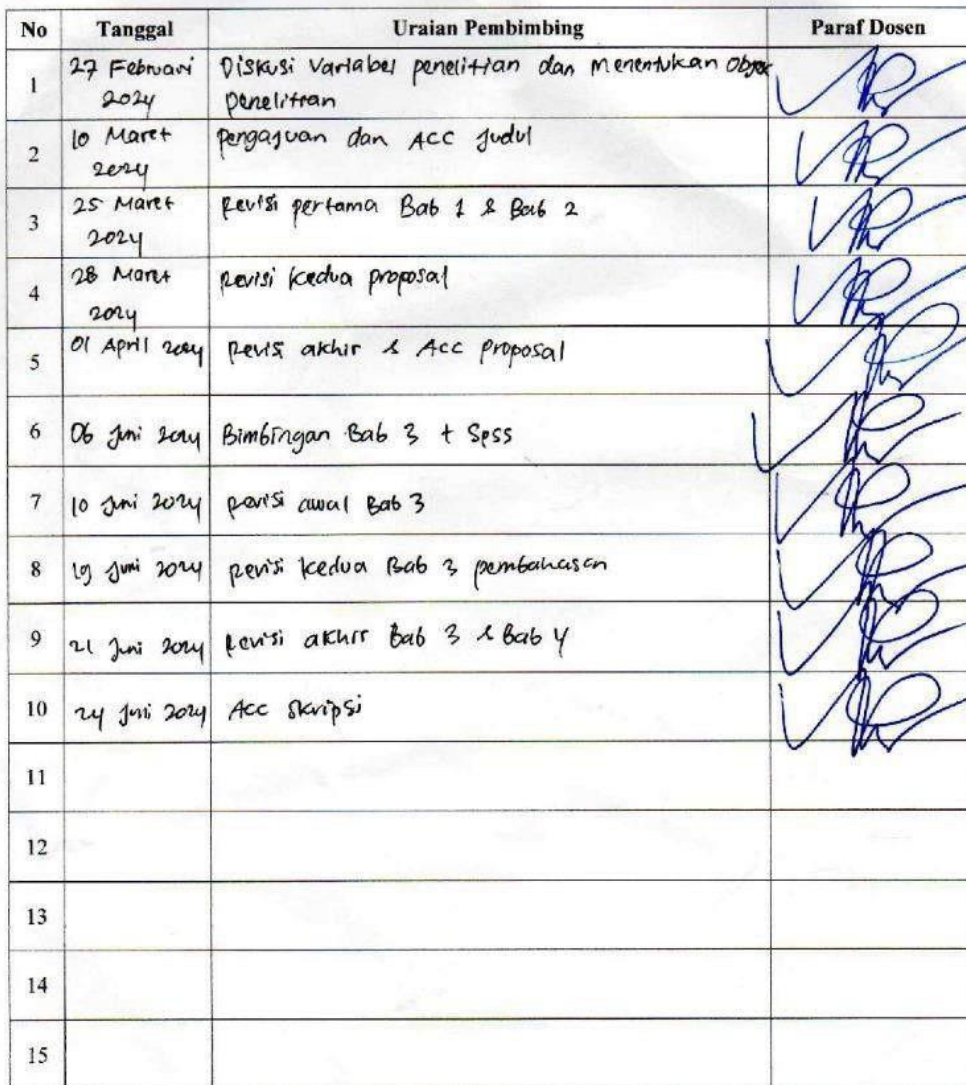 No Tanggal Uraian Pembimbing Paraf Dosen
1 27 Februari 2024 Diskusi Variabel penelitian dan Menentukan Objek
penelitian
2 10 Maret 2024 pengajuan dan ACC Judul
3 25 Maret 2024 Revisi pertama Bab 1 & Bab 2
4 28 Maret 2024 Revisi kedua proposal
5 01 April 2024 Revisi akhir & ACC proposal
6 06 Juni 2024 Bimbingan Bab 3 + Spss
7 10 Juni 2024 Revisi awal Bab 3
8 19 Juni 2024 Revisi kedua Bab 3 pembahasan
9 21 Juni 2024 Revisi akhir Bab 3 & Bab 4
10 24 Juni 2024 ACC Skripsi
11
12
13
14
15